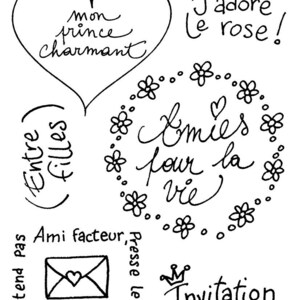 mon
prince
charmant
J'adore
Le rose!
(Entre
filles)
Amies
pour la
vie
Ami facteur,
Presse le
tend Pas
Invitation